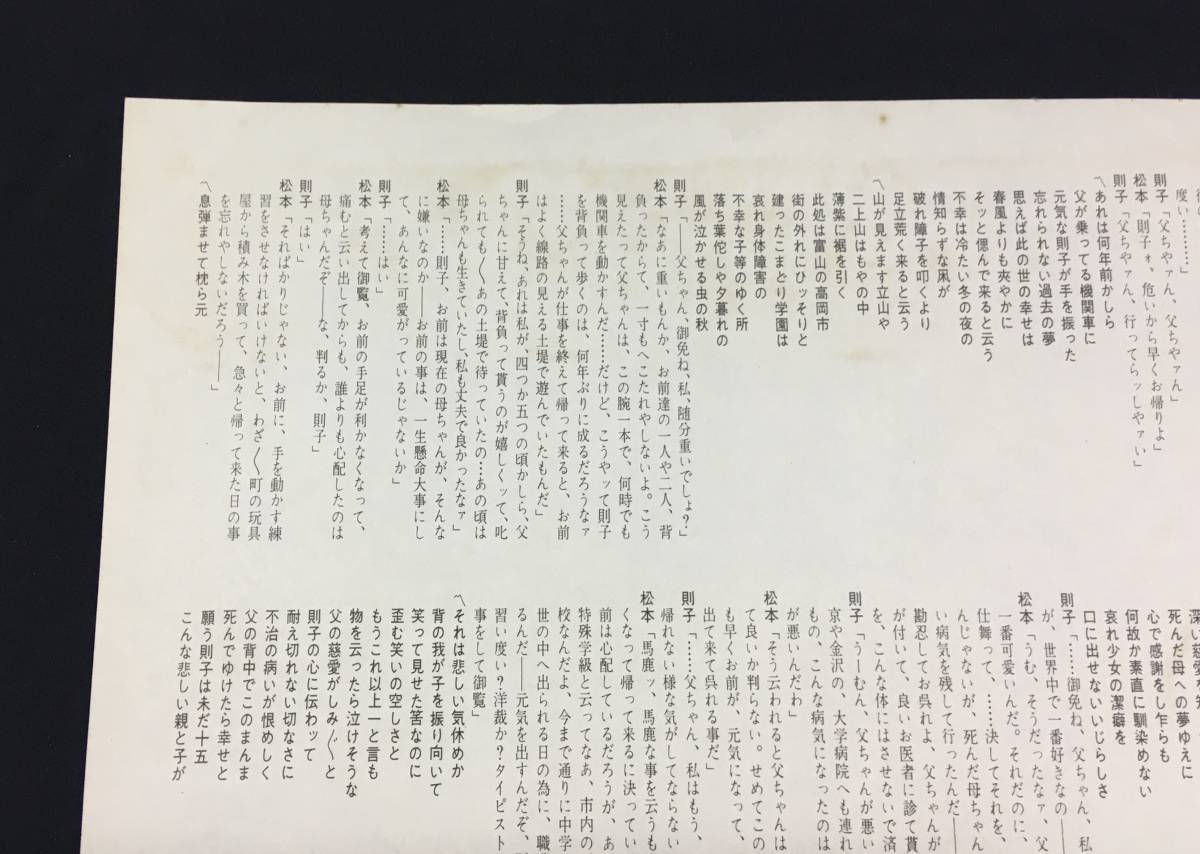 度い………」
則子「父ちやァん、父ちやァん」
松本「則子ォ、危いから早くお帰りよ」
則子「父ちやァん、行ってらッしやァい」
〽あれは何年前かしら
父が乗ってる機関車に
元気な則子が手を振った
忘れられない過去の夢
思えば此の世の幸せは
春風よりも爽やかに
そッと偲んで来ると云う
不幸は冷たい冬の夜の
情知らずな凩が
破れ障子を叩くより
足立荒く来ると云う
〽山が見えます立山や
二上山はもやの中
薄紫に裾を引く
此処は富山の高岡市
街の外れにひッそりと
建ったこまどり学園は
哀れ身体障害の
不幸な子等のゆく所
落ち葉佗しや夕暮れの
風が泣かせる虫の秋
則子「――父ちゃん、御免ね、私、随分重いでしょ？」
松本「なあに重いもんか、お前達の一人や二人、背
負ったからて、一寸もへこたれやしないよ。こう
見えたって父ちゃんは、この腕一本で、何時でも
機関車を動かすんだ………だけど、こうやッて則子
を背負って歩くのは、何年ぶりに成るだろうなァ
……父ちゃんが仕事を終えて帰って来ると、お前
はよく線路の見える土堤で遊んでいたもんだ」
則子「そうね、あれは私が、四つか五つの頃かしら、父
ちゃんに甘えて、背負って貰うのが嬉しくッて、叱
られても〱あの土堤で待っていたの…あの頃は
母ちゃんも生きていたし、私も丈夫で良かったなァ」
松本「……則子、お前は現在の母ちゃんが、そんな
に嫌いなのか――お前の事は、一生懸命大事にし
て、あんなに可愛がっているじゃないか」
則子「……はい」
松本「考えて御覧、お前の手足が利かなくなって、
痛むと云い出してからも、誰よりも心配したのは
母ちゃんだぞ――な、判るか、則子」
則子「はい」
松本「そればかりじゃない、お前に、手を動かす練
習をさせなければいけないと、わざ〱町の玩具
屋から積み木を買って、急々と帰って来た日の事
を忘れやしないだろう――」
〽息弾ませて枕ら元
死んだ母への夢ゆえに
心で感謝をし乍らも
何故か素直に馴染めない
哀れ少女の潔癖を
口に出せないいじらしさ
則子「……御免ね、父ちゃん、私
が、世界中で一番好きなの――
松本「うむ、そうだったなァ、父
一番可愛いんだ。それだのに、
仕舞って、……決してそれを、
んじゃないが、死んだ母ちゃん
い病気を残して行ったんだ――
勘忍してお呉れよ、父ちゃんが
が付いて、良いお医者に診て貰
を、こんな体にはさせないで済
則子「うーむん、父ちゃんが悪い
京や金沢の、大学病院へも連れ
もの、こんな病気になったのは
が悪いんだわ」
松本「そう云われると父ちゃんは
て良いか判らない。せめてこの
も早くお前が、元気になって、
出て来て呉れる事だ」
則子「……父ちゃん、私はもう、
帰れない様な気がしてならない
松本「馬鹿ッ、馬鹿な事を云うも
くなって帰って来るに決ってい
前は心配しているだろうが、あ
特殊学級と云ってなあ、市内の
校なんだよ、今まで通りに中学
世の中へ出られる日の為に、職
るんだ――元気を出すんだぞ、
習い度い？洋裁か？タイピスト
事をして御覧」
〽それは悲しい気休めか
背の我が子を振り向いて
笑って見せた筈なのに
歪む笑いの空しさと
もうこれ以上一と言も
物を云ったら泣けそうな
父の慈愛がしみ〲と
則子の心に伝わって
耐え切れない切なさに
不治の病いが恨めしく
父の背中でこのまんま
死んでゆけたら幸せと
願う則子は未だ十五
こんな悲しい親と子が